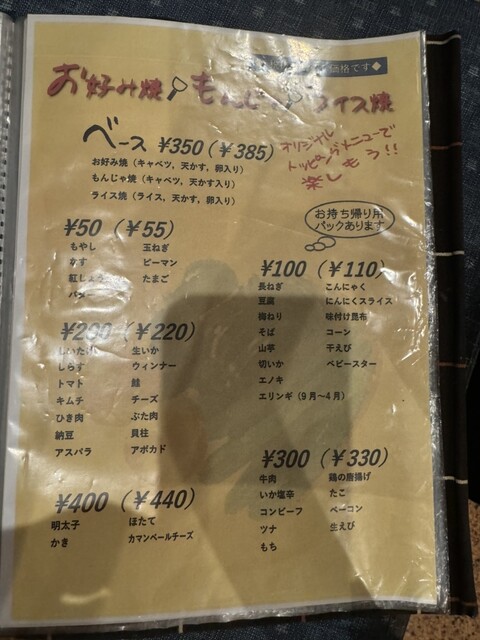 価格です◆
お好み焼 もんじゃ ライス焼
ベース ¥350(￥385)
お好み焼（キャベツ，天かす，卵入り）
もんじゃ焼（キャベツ，天かす入り）
ライス焼（ライス，天かす，卵入り）
オリジナル
トッピングメニューで
楽しもう!!
お持ち帰り用
パックあります
¥50（￥55）
もやし 玉ねぎ
なす ピーマン
紅しょうが たまご
バター
¥100（￥110）
長ねぎ こんにゃく
豆腐 にんにくスライス
梅ねり 味付け昆布
そば コーン
山芋 干えび
切いか ベビースター
エノキ
エリンギ（9月～4月）
¥200（￥220）
しいたけ 生いか
しらす ウィンナー
トマト 鮭
キムチ チーズ
ひき肉 ぶた肉
納豆 貝柱
アスパラ アボカド
¥300（￥330）
牛肉 鶏の唐揚げ
いか塩辛 たこ
コンビーフ ベーコン
ツナ 生えび
もち
¥400（￥440）
明太子 ほたて
かき カマンベールチーズ